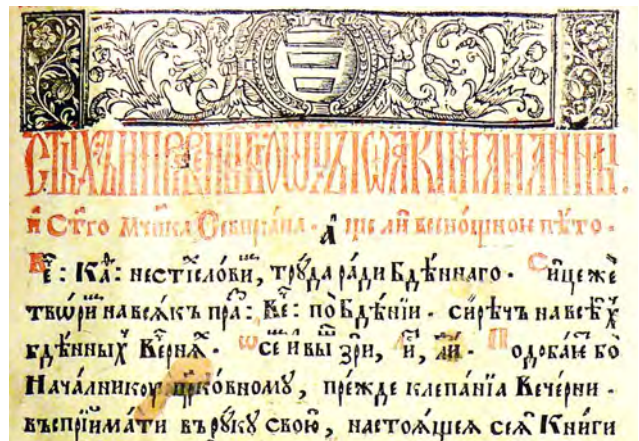 СТЫ́ХЪ И ПРВЕНЫ́Х БГООЦЪ ІѠАКИМА И АННЫ.
и҆ Ст҃го Мч҃нка Севиріана . А҆ще ли всенощное пѣто .
Ве҆ : Ка҄ѳ : нестіхлови, трꙋда ра́ди Бдѣ́ннаго . Си́це же
твѡри на всѧ́къ пра́ : Ве́ : по Бдѣ́нїи . си́рѣчъ на всѣ́х
бдѣ́нных Ве́рнѧ . ѡ се и вы зри, и҃, ли . Подоба́е бо
Нача́лникꙋ црко́вномꙋ, пре́жде клепа́нїа Вече́рни .
въспрїима́ти в рꙋкꙋ свою̀, настоѧ́щеѧ сеѧ̀ Кни́ги